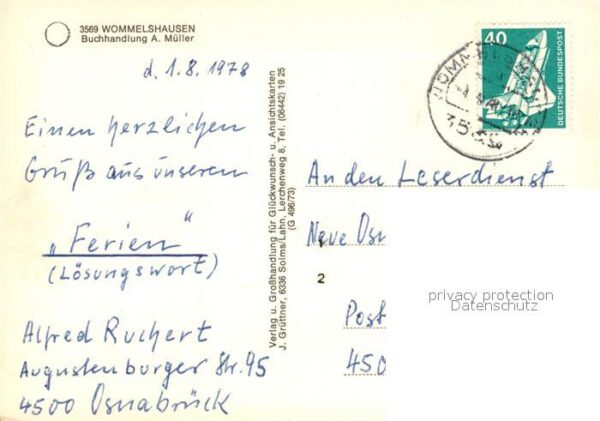 3569 WOMMELSHAUSEN
Buchhandlung A. Müller
d. 1.8.1978
Einen herzlichen
Gruß aus unseren
„Ferien"
(Lösungswort)
Alfred Ruchert
Augustenburger Str. 95
4500 Osnabrück
Verlag u. Großhandlung für Glückwunsch- u. Ansichtskarten
J. Grüttner, 6336 Solms/Lahn, Lerchenweg 8, Tel. (06442) 19 25
(G 496/73)
40
DEUTSCHE BUNDESPOST
An den Leserdienst
Neue Osn
1
2
Post
450
privacy protection
Datenschutz